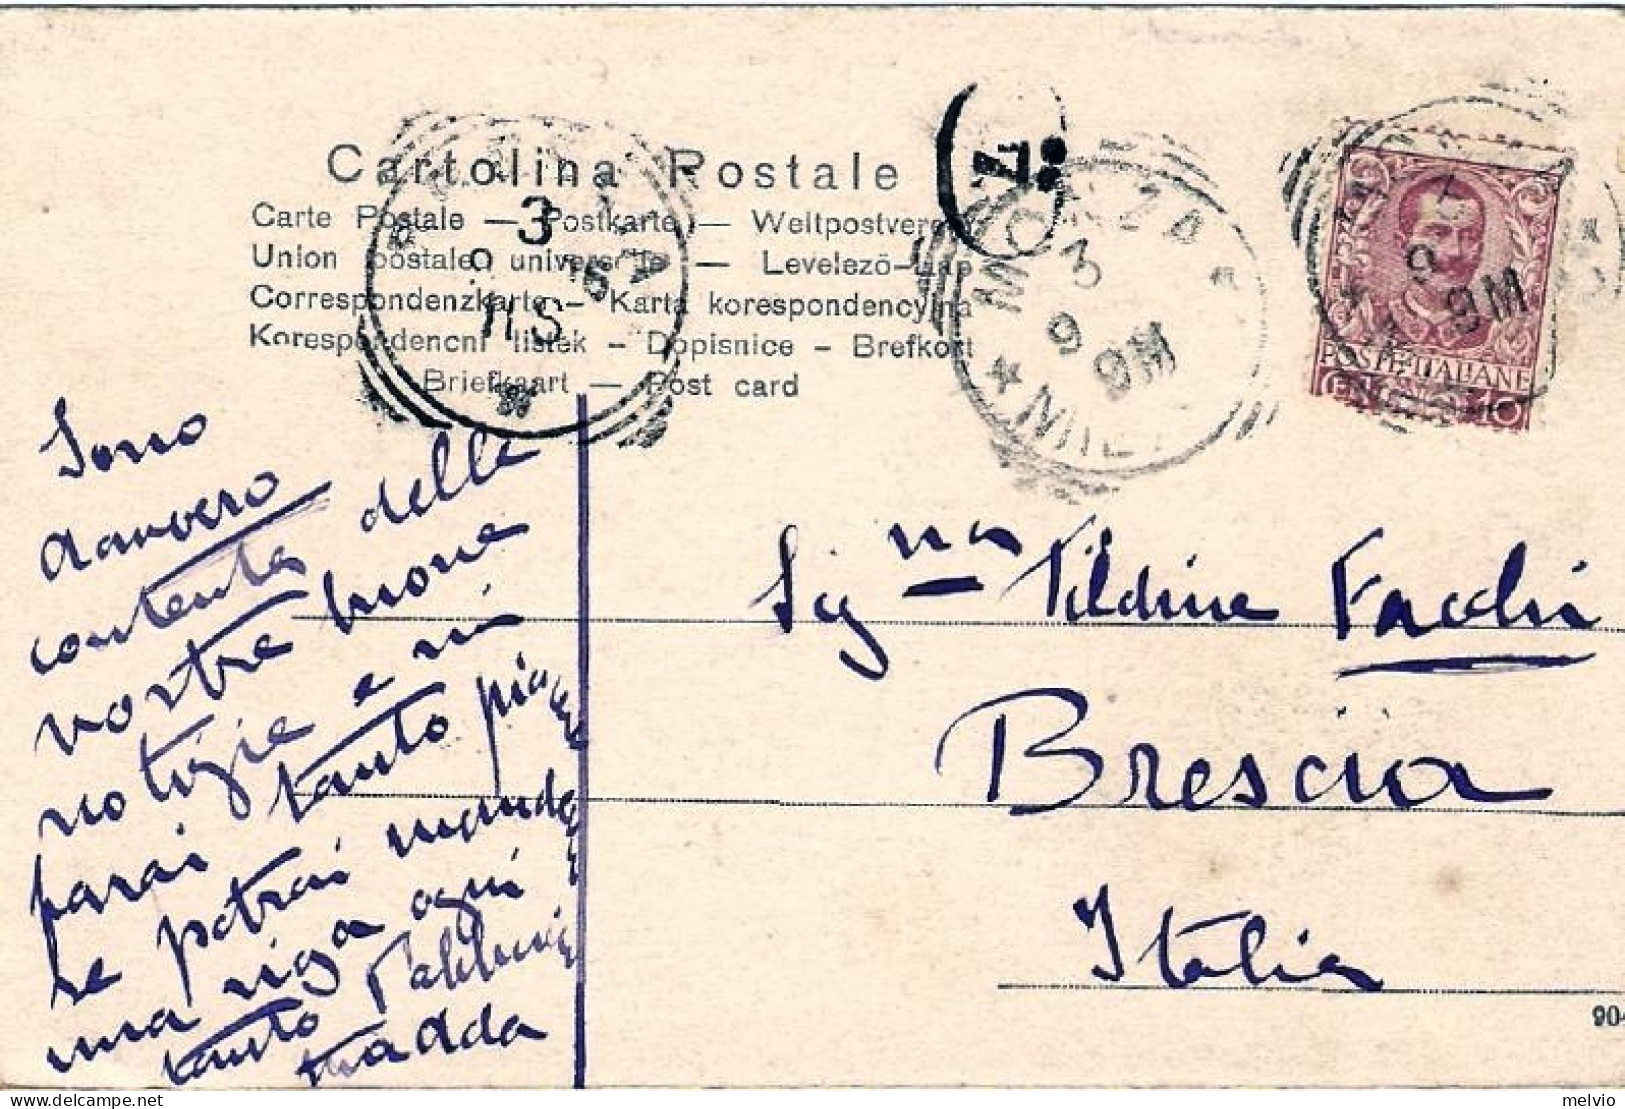 Cartolina Postale
Carte Postale — Postkarte — Weltpostverein
Union postale universelle — Levelező-Lap
Correspondenzkarte – Karta korespondencyjna
Korespondencni listek – Dopisnice – Brefkort
Briefkaart — Post card
3
9 06
11 S
MONZA
3
9
9M
MILANO
9
9M
POSTE ITALIANE
10
Sono
davvero
contenta delle
vostre buone
notizie e mi
farai tanto piacere
se potrai mandar
una riga ogni
tanto
Sig.na Tildina Facchi
Brescia
Italia
904
melvio